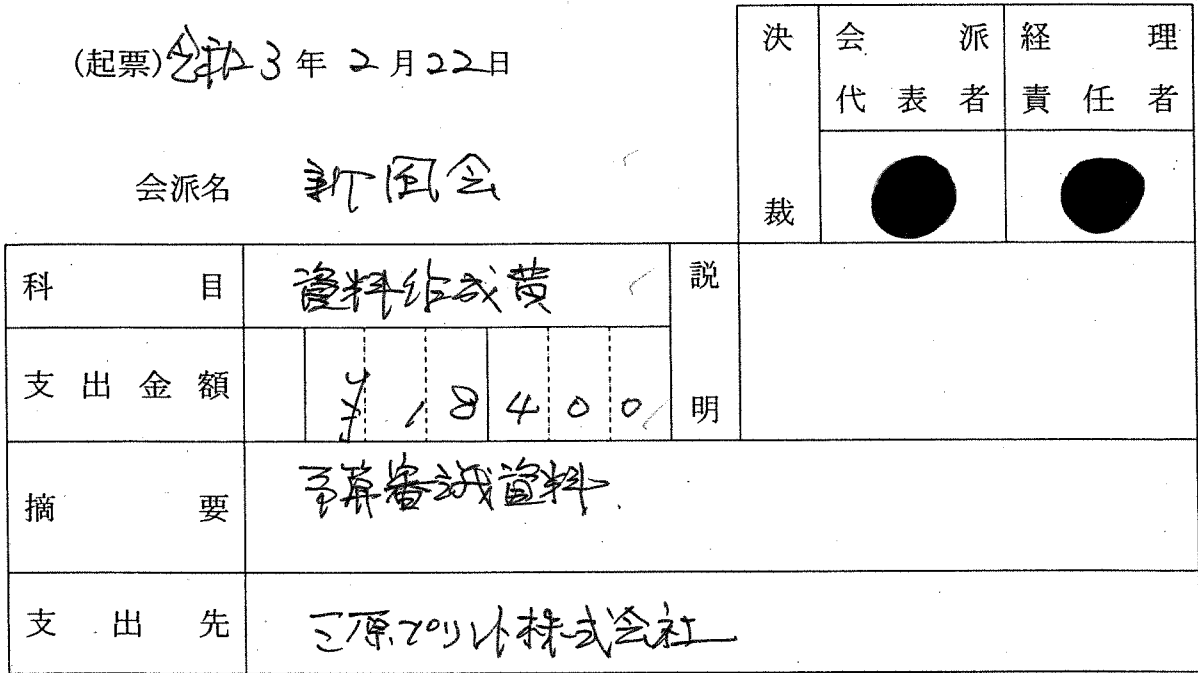 (起票)令和3年2月22日
会派名 新風会
決裁
会派代表者
経理責任者
科目 資料作成費
支出金額 ¥18400
説明
摘要 予算審議資料
支出先 三原プリント株式会社